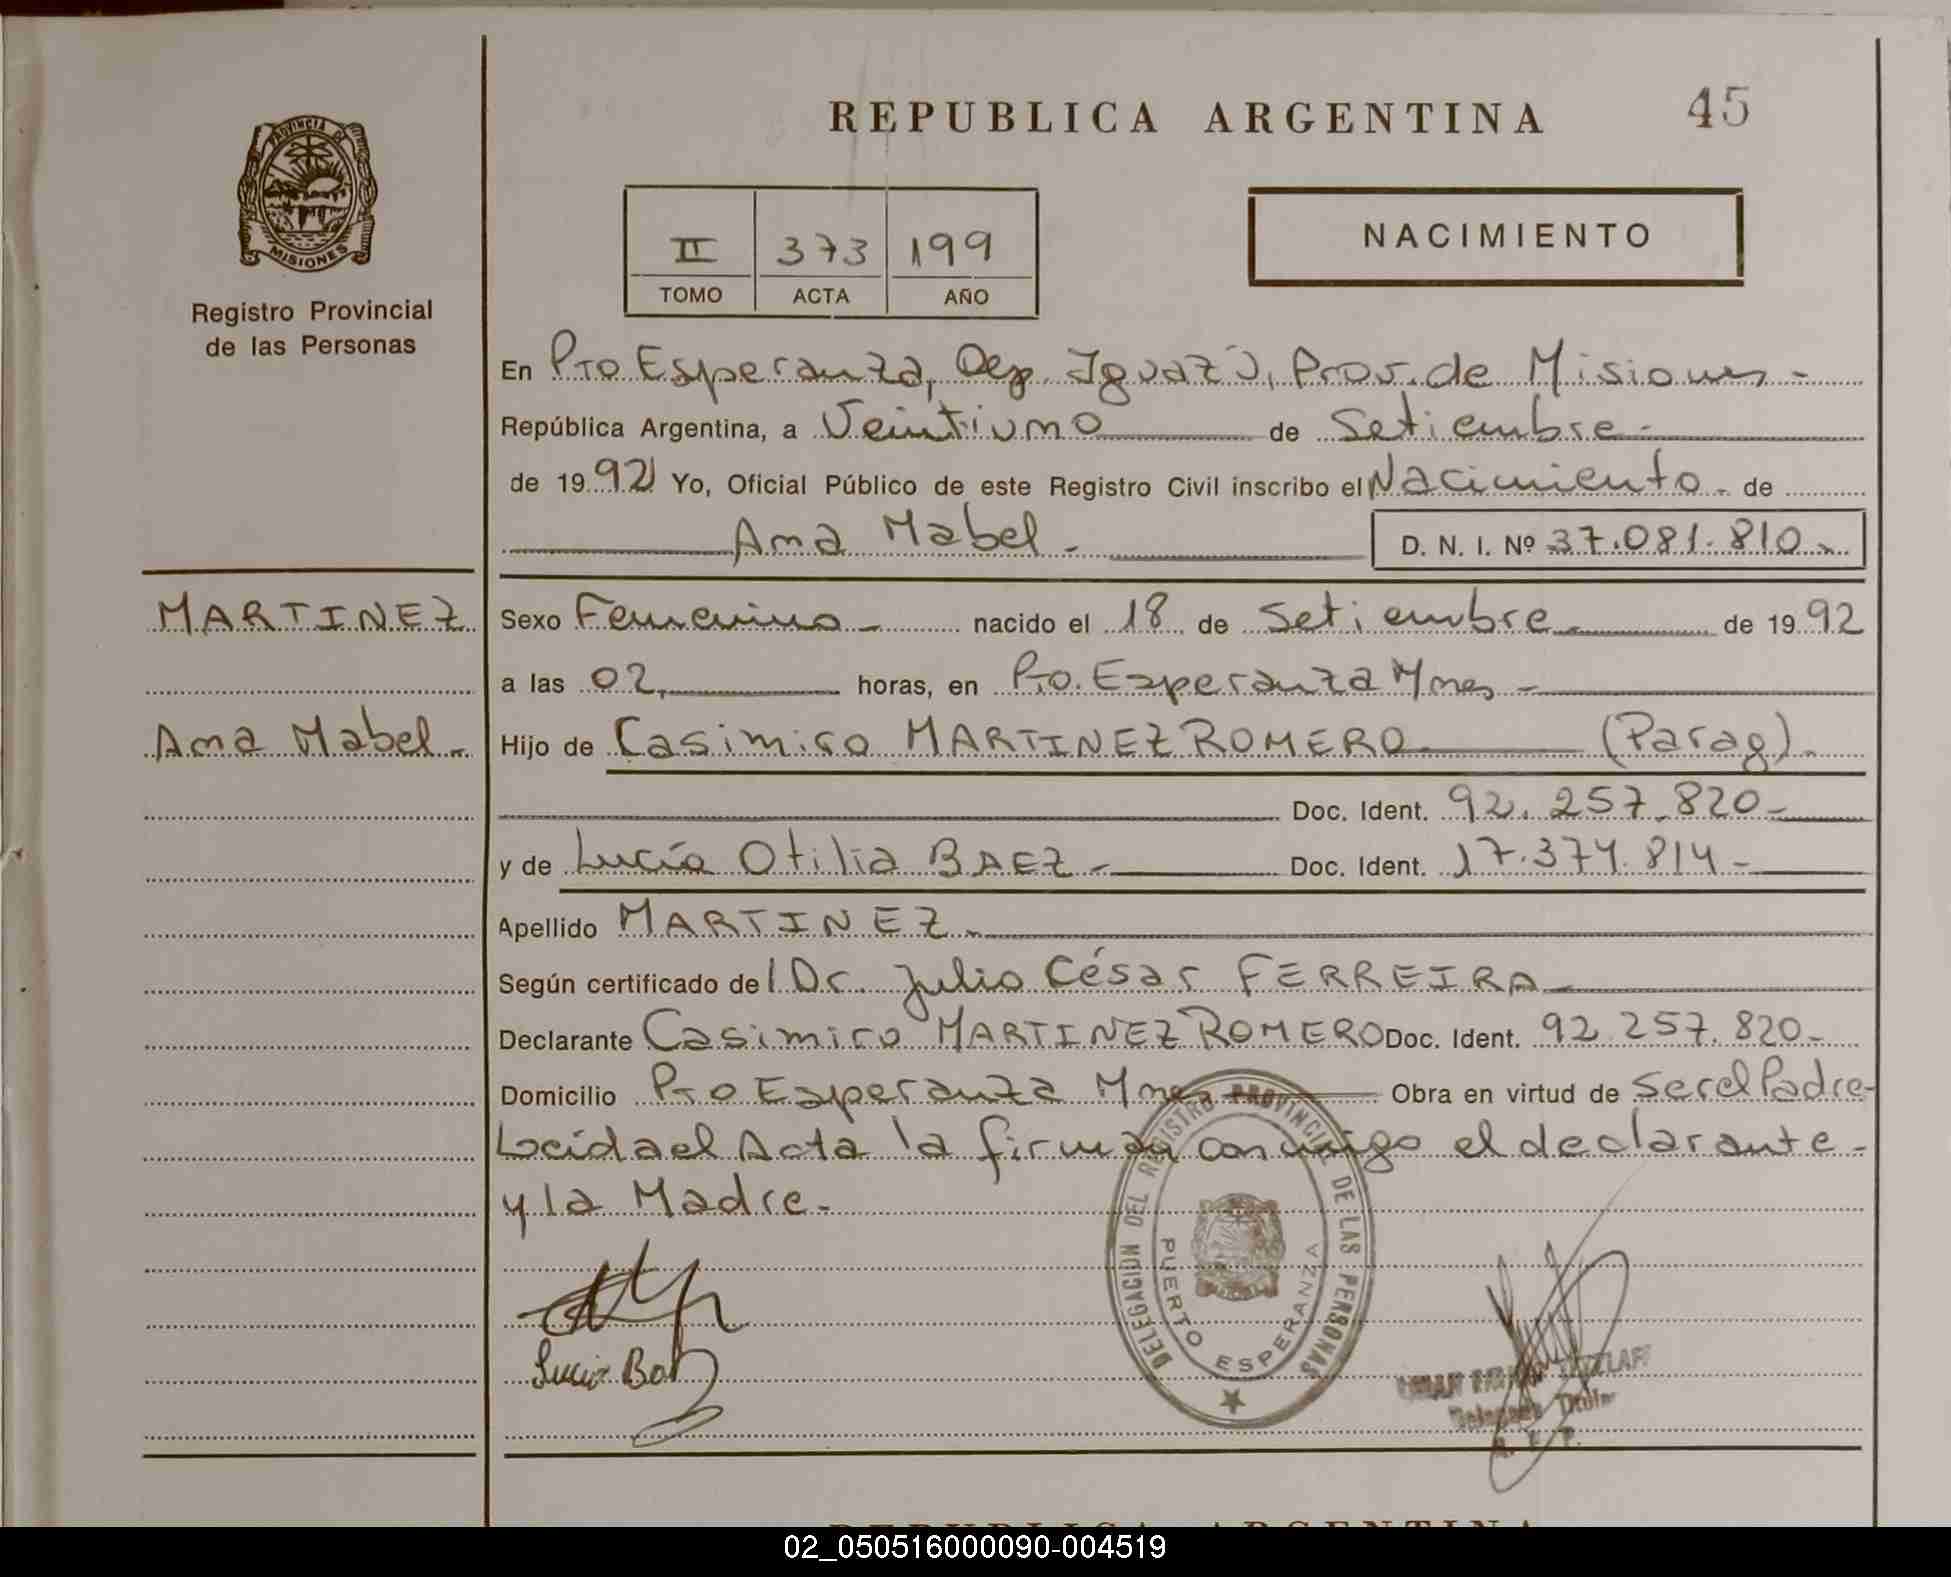 REPUBLICA ARGENTINA
45
PROVINCIA DE
MISIONES
Registro Provincial
de las Personas
II 373 199
TOMO ACTA AÑO
NACIMIENTO
En Pto Esperanza, Dep. Iguazú, Prov. de Misiones -
República Argentina, a Veintiuno de Setiembre -
de 1992 Yo, Oficial Público de este Registro Civil inscribo el Nacimiento - de
Ana Mabel - D. N. I. Nº 37.081.810 -
MARTINEZ
Ana Mabel -
Sexo Femenino - nacido el 18 de Setiembre - de 1992
a las 02, horas, en Pto. Esperanza Mnes -
Hijo de Casimiro MARTINEZ ROMERO (Parag).
Doc. Ident. 92.257.820 -
y de Lucía Otilia BAEZ - Doc. Ident. 17.374.814 -
Apellido MARTINEZ -
Según certificado del Dr. Julio César FERREIRA -
Declarante Casimiro MARTINEZ ROMERO Doc. Ident. 92.257.820 -
Domicilio Pto Esperanza Mnes Obra en virtud de Ser el Padre -
Leida el Acta la firman conmigo el declarante -
y la Madre -
DELEGACION DEL REGISTRO PROVINCIAL DE LAS PERSONAS
PUERTO ESPERANZA
Lucia
Delegado Titular
R. P. P.
REPUBLICA ARGENTINA
02_050516000090-004519